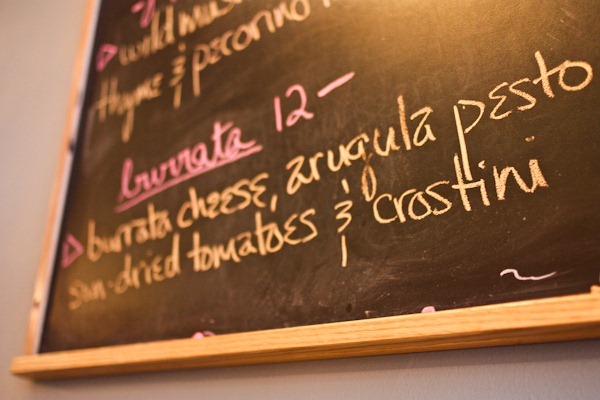 wild mus
thyme & pecorino
burrata 12-
burrata cheese, arugula pesto
sun-dried tomatoes & crostini